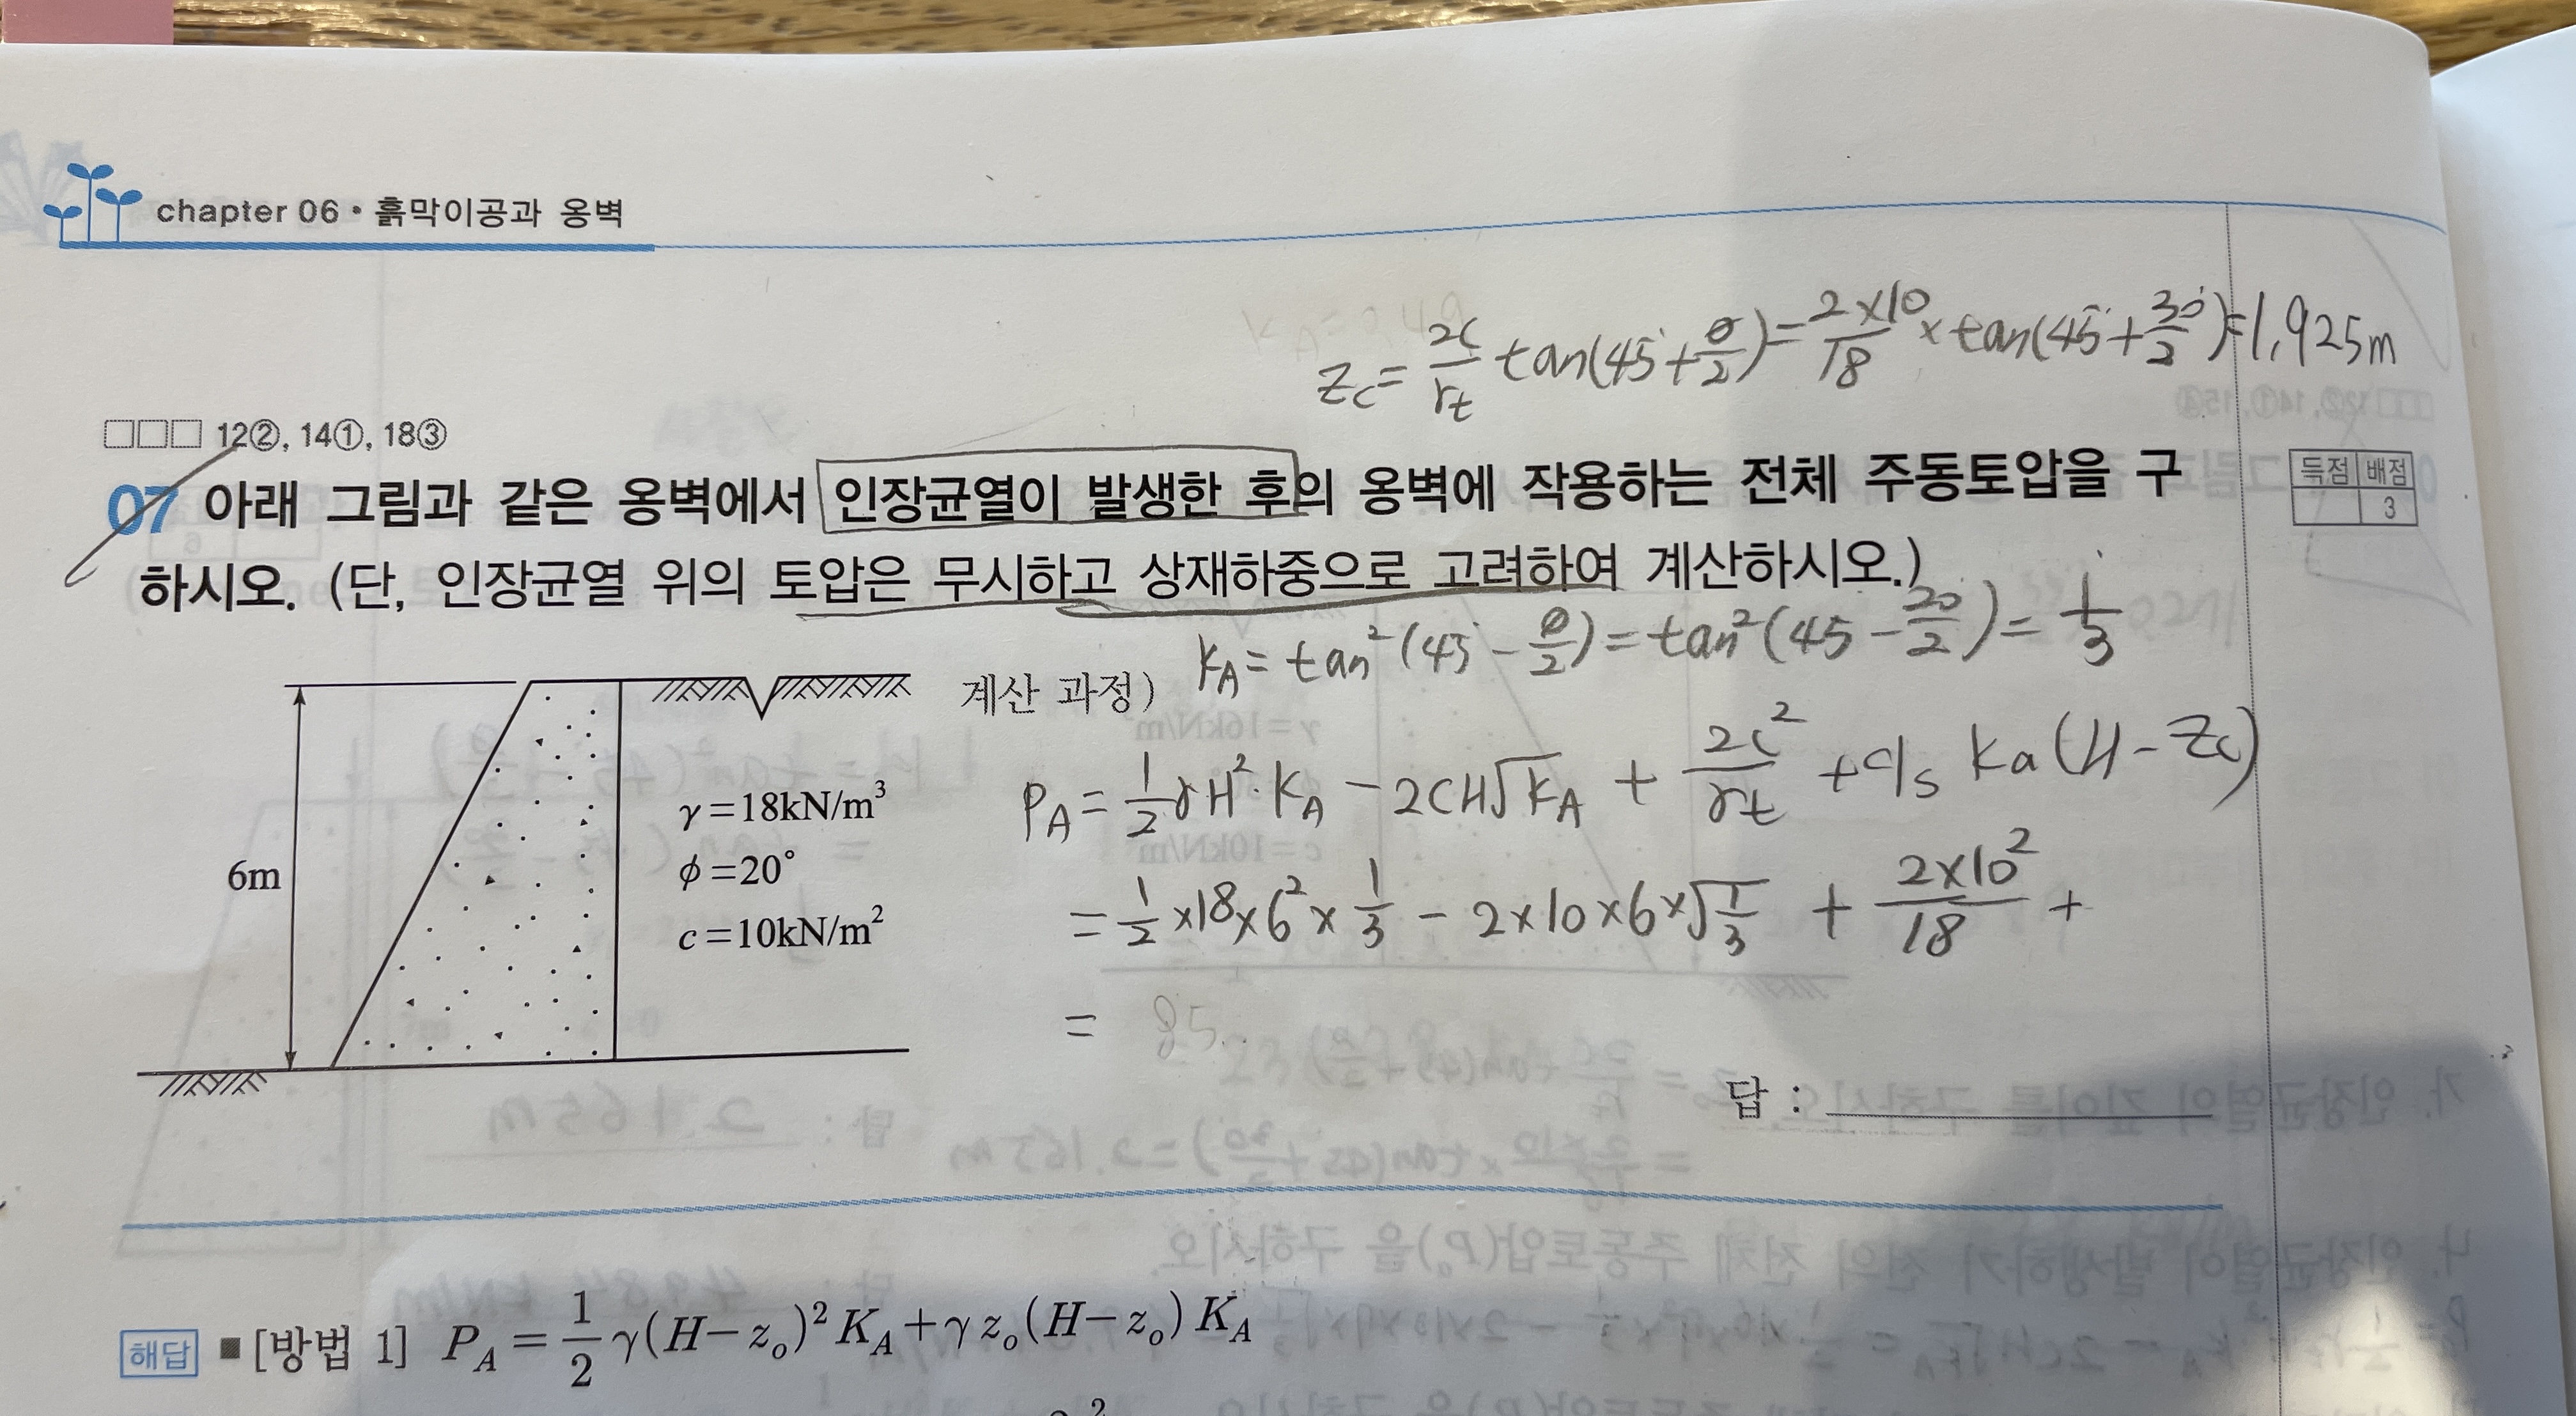 chapter 06 • 흙막이공과 옹벽
Zc = 2c/rt tan(45°+ø/2) = 2×10/18 × tan(45°+30°/2) = 1.925m
□□□ 12②, 14①, 18③
07 아래 그림과 같은 옹벽에서 인장균열이 발생한 후의 옹벽에 작용하는 전체 주동토압을 구
하시오. (단, 인장균열 위의 토압은 무시하고 상재하중으로 고려하여 계산하시오.)
득점 배점
3
KA = tan²(45° - ø/2) = tan²(45 - 20/2) = 1/3
계산 과정)
PA = 1/2 γH²·KA - 2CH√KA + 2c²/γt + qs Ka(H-Zc)
= 1/2 ×18×6²× 1/3 - 2×10×6×√1/3 + 2×10²/18 +
= 85.
6m
γ=18kN/m³
φ=20°
c=10kN/m²
답 :
해답 ■ [방법 1] P_A = 1/2 γ(H-z_o)² K_A + γ z_o (H-z_o) K_A